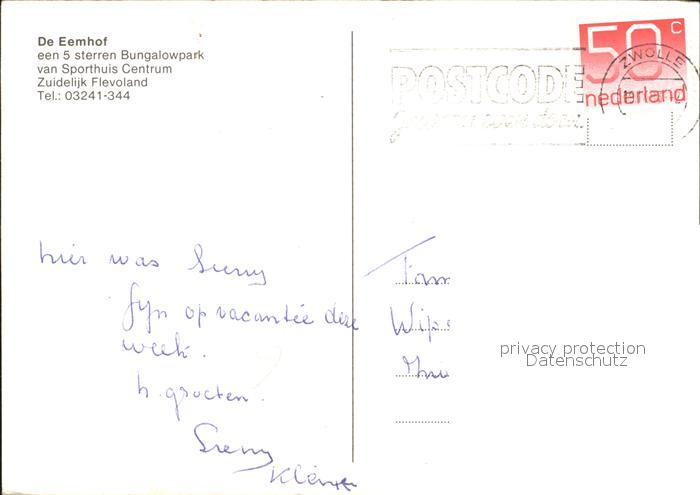 De Eemhof
een 5 sterren Bungalowpark
van Sporthuis Centrum
Zuidelijk Flevoland
Tel.: 03241-344
50 C
nederland
ZWOLLE
POSTCODE
hier was
fijn op vacantie deze
week.
h. groeten.
Fam
Wip
privacy protection
Datenschutz